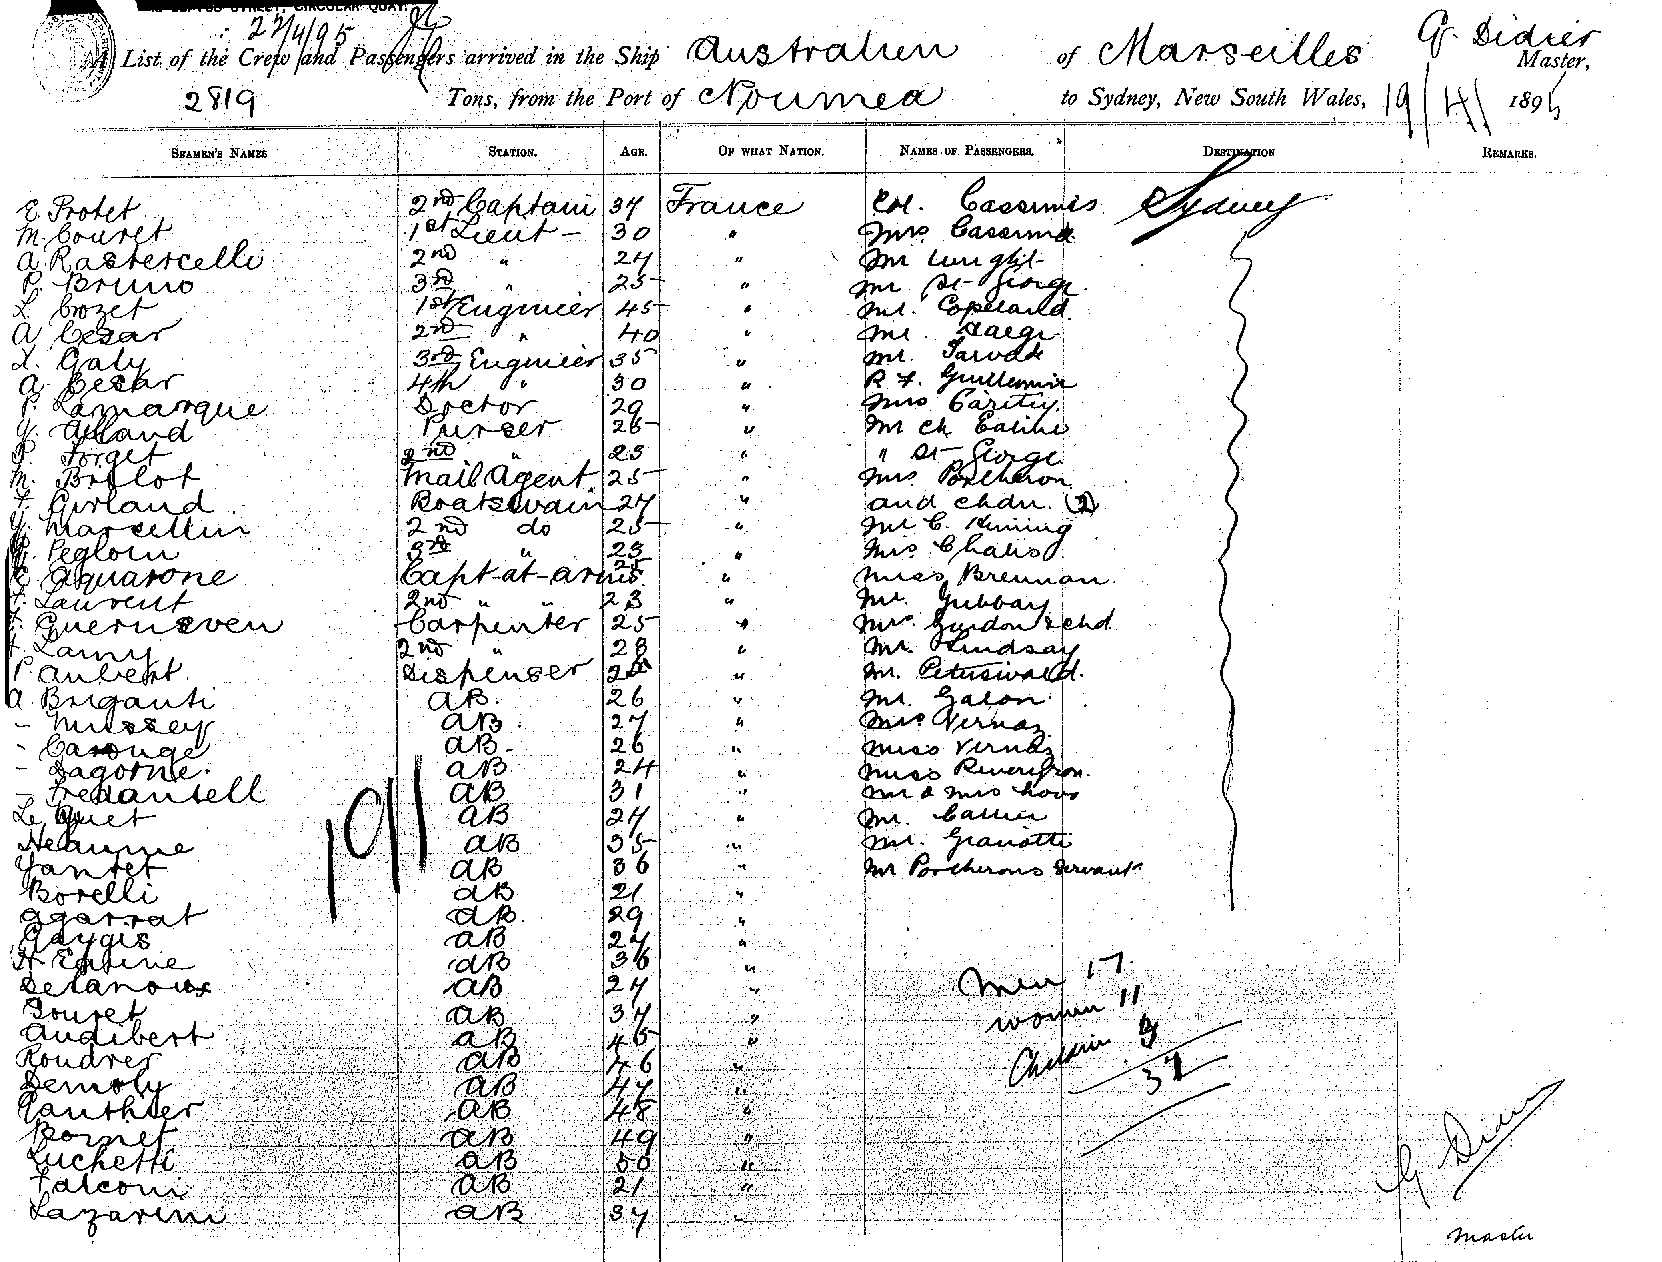 LOFTUS STREET, CIRCULAR QUAY.
22/4/95
A List of the Crew and Passengers arrived in the Ship Australien of Marseilles G. Didier Master,
2819 Tons, from the Port of Noumea to Sydney, New South Wales, 19/4/ 1895
SEAMEN'S NAMES STATION. AGE. OF WHAT NATION. NAMES OF PASSENGERS. DESTINATION REMARKS.
E Protet 2nd Captain 37 France Col. Sydney
M. Couret 1st Lieut - 30 " Mrs
A Rastercelli 2nd " 27 " Mr
P. Bruno 3rd " 25 " Mr St George
L. Crozet 1st Engineer 45 " Mr. Copeland
A Cesar 2nd " 40 " Mr
L. Galy 3rd Engineer 35 " Mr.
A Cesar 4th " 30 " Guillemin
P. Lamarque Doctor 29 " Mrs
Alland Purser 26 " Mr Ch
Forget 2nd " 23 " " St George
M. Brelot Mail Agent 25 " Mrs Porcheron
Girland Boatswain 27 " and chdn (2)
Marcellin 2nd do 25 " Mr C.
Pegloin 3rd " 23 " Mrs Chalis
Aquarone Capt-at-arms " Miss Brennan
Laurent 2nd " " 23 " Mr. Gubbay
Guernsven Carpenter 25 " Mrs Gurdon & chd
Lamy 2nd " 23 " Mr Lindsay
P. Aubert Dispenser " Mr.
A Briganti AB. 26 " Mr. Galon
- Mussey AB. 27 " Mrs Vernaz
- Carouge AB. 26 " Miss Vernaz
- Lagorne. AB 24 " Miss
- Tredantell AB 31 " Mr & Mrs
Le Guet AB 27 " Mr.
Heaume AB 35 " Mr. Graviotti
Yantet AB 36 " Mr Porcherons Servant
Borelli AB 21 "
Agarrat AB. 29 "
Gaygis AB 27 "
AB 36 "
Delanoux AB 27 " Men 17
Gouret AB 37 " women 11
Audibert AB 45 " Children 3
Roudrer AB 46 "
Demoly AB 47 "
Gauthier AB 48 "
Bornet AB 49 "
Luchetti AB 50 "
Falconi AB 21 " G Didier
Lazarini AB 37 " Master
1911